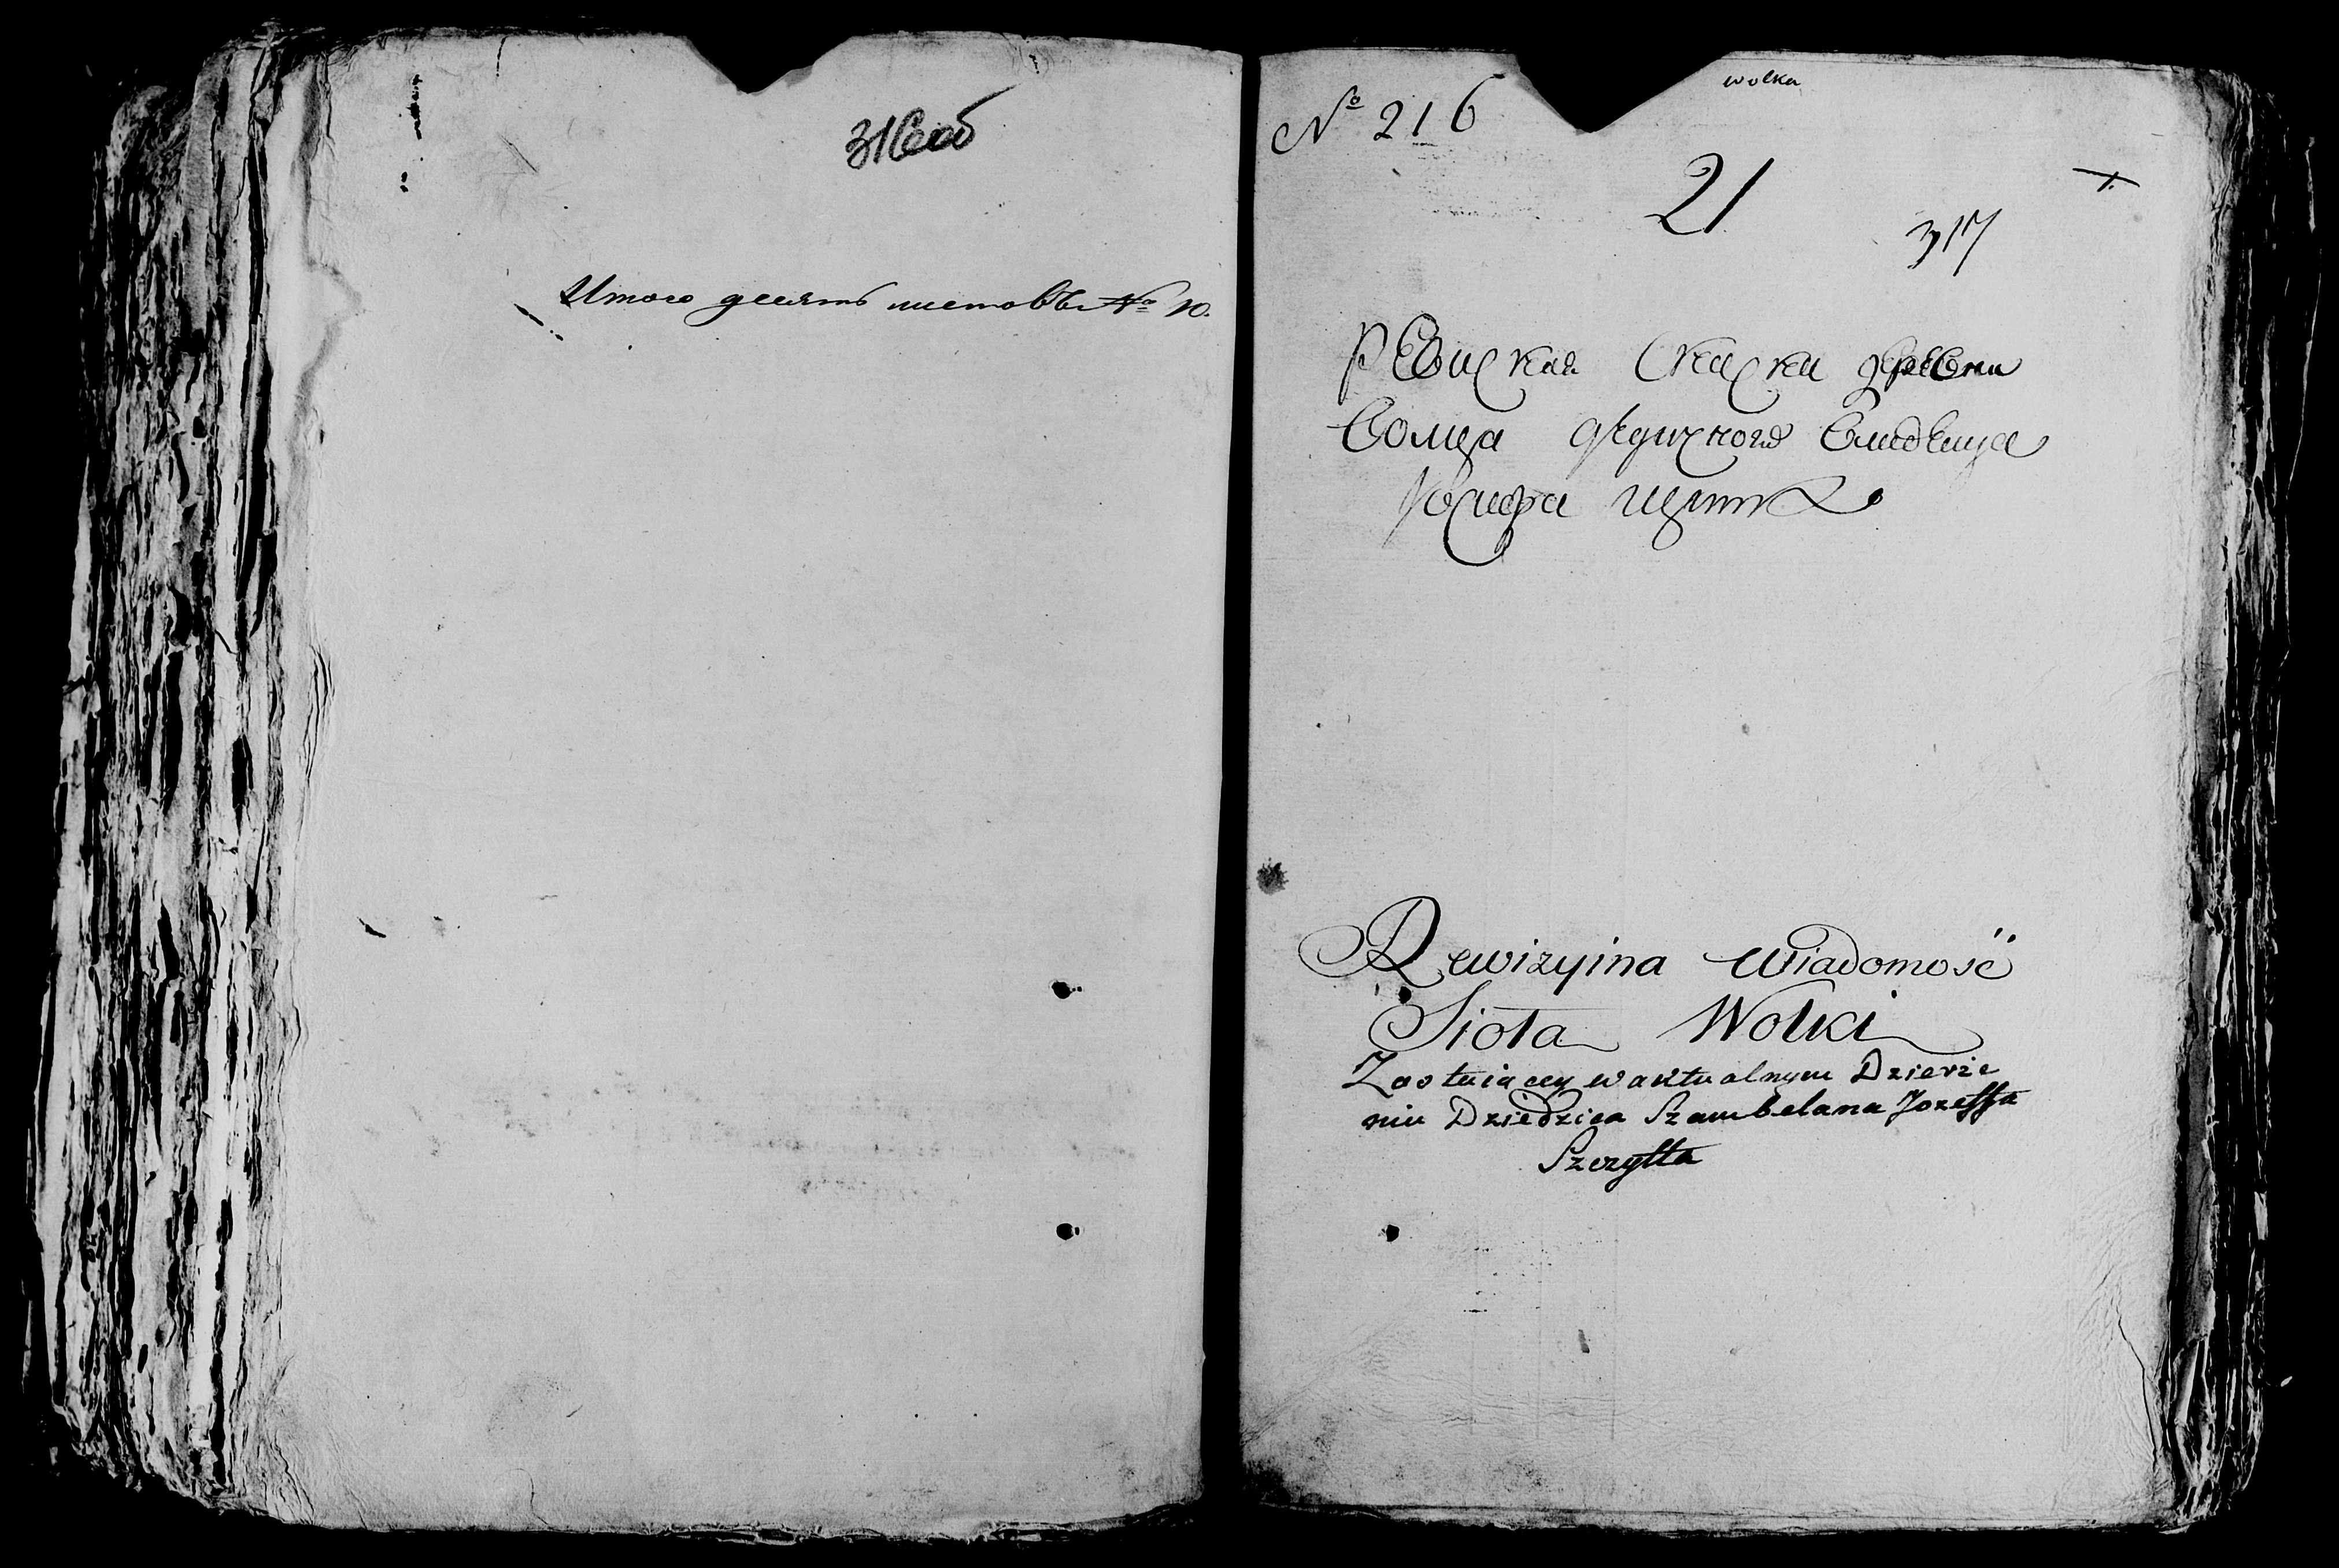 316об
Итого десять листовъ № 10.
wolka
№ 216
21
1.
317
Ревиская Скаска деревни
Волки дедичного владельца
Иосифа щита
Rewizyina Wiadomość
Sioła Wolki
Zostuiącey w aktualnym Dzierże
niu Dziedzica Szambelana Jozeffa
Szczytta